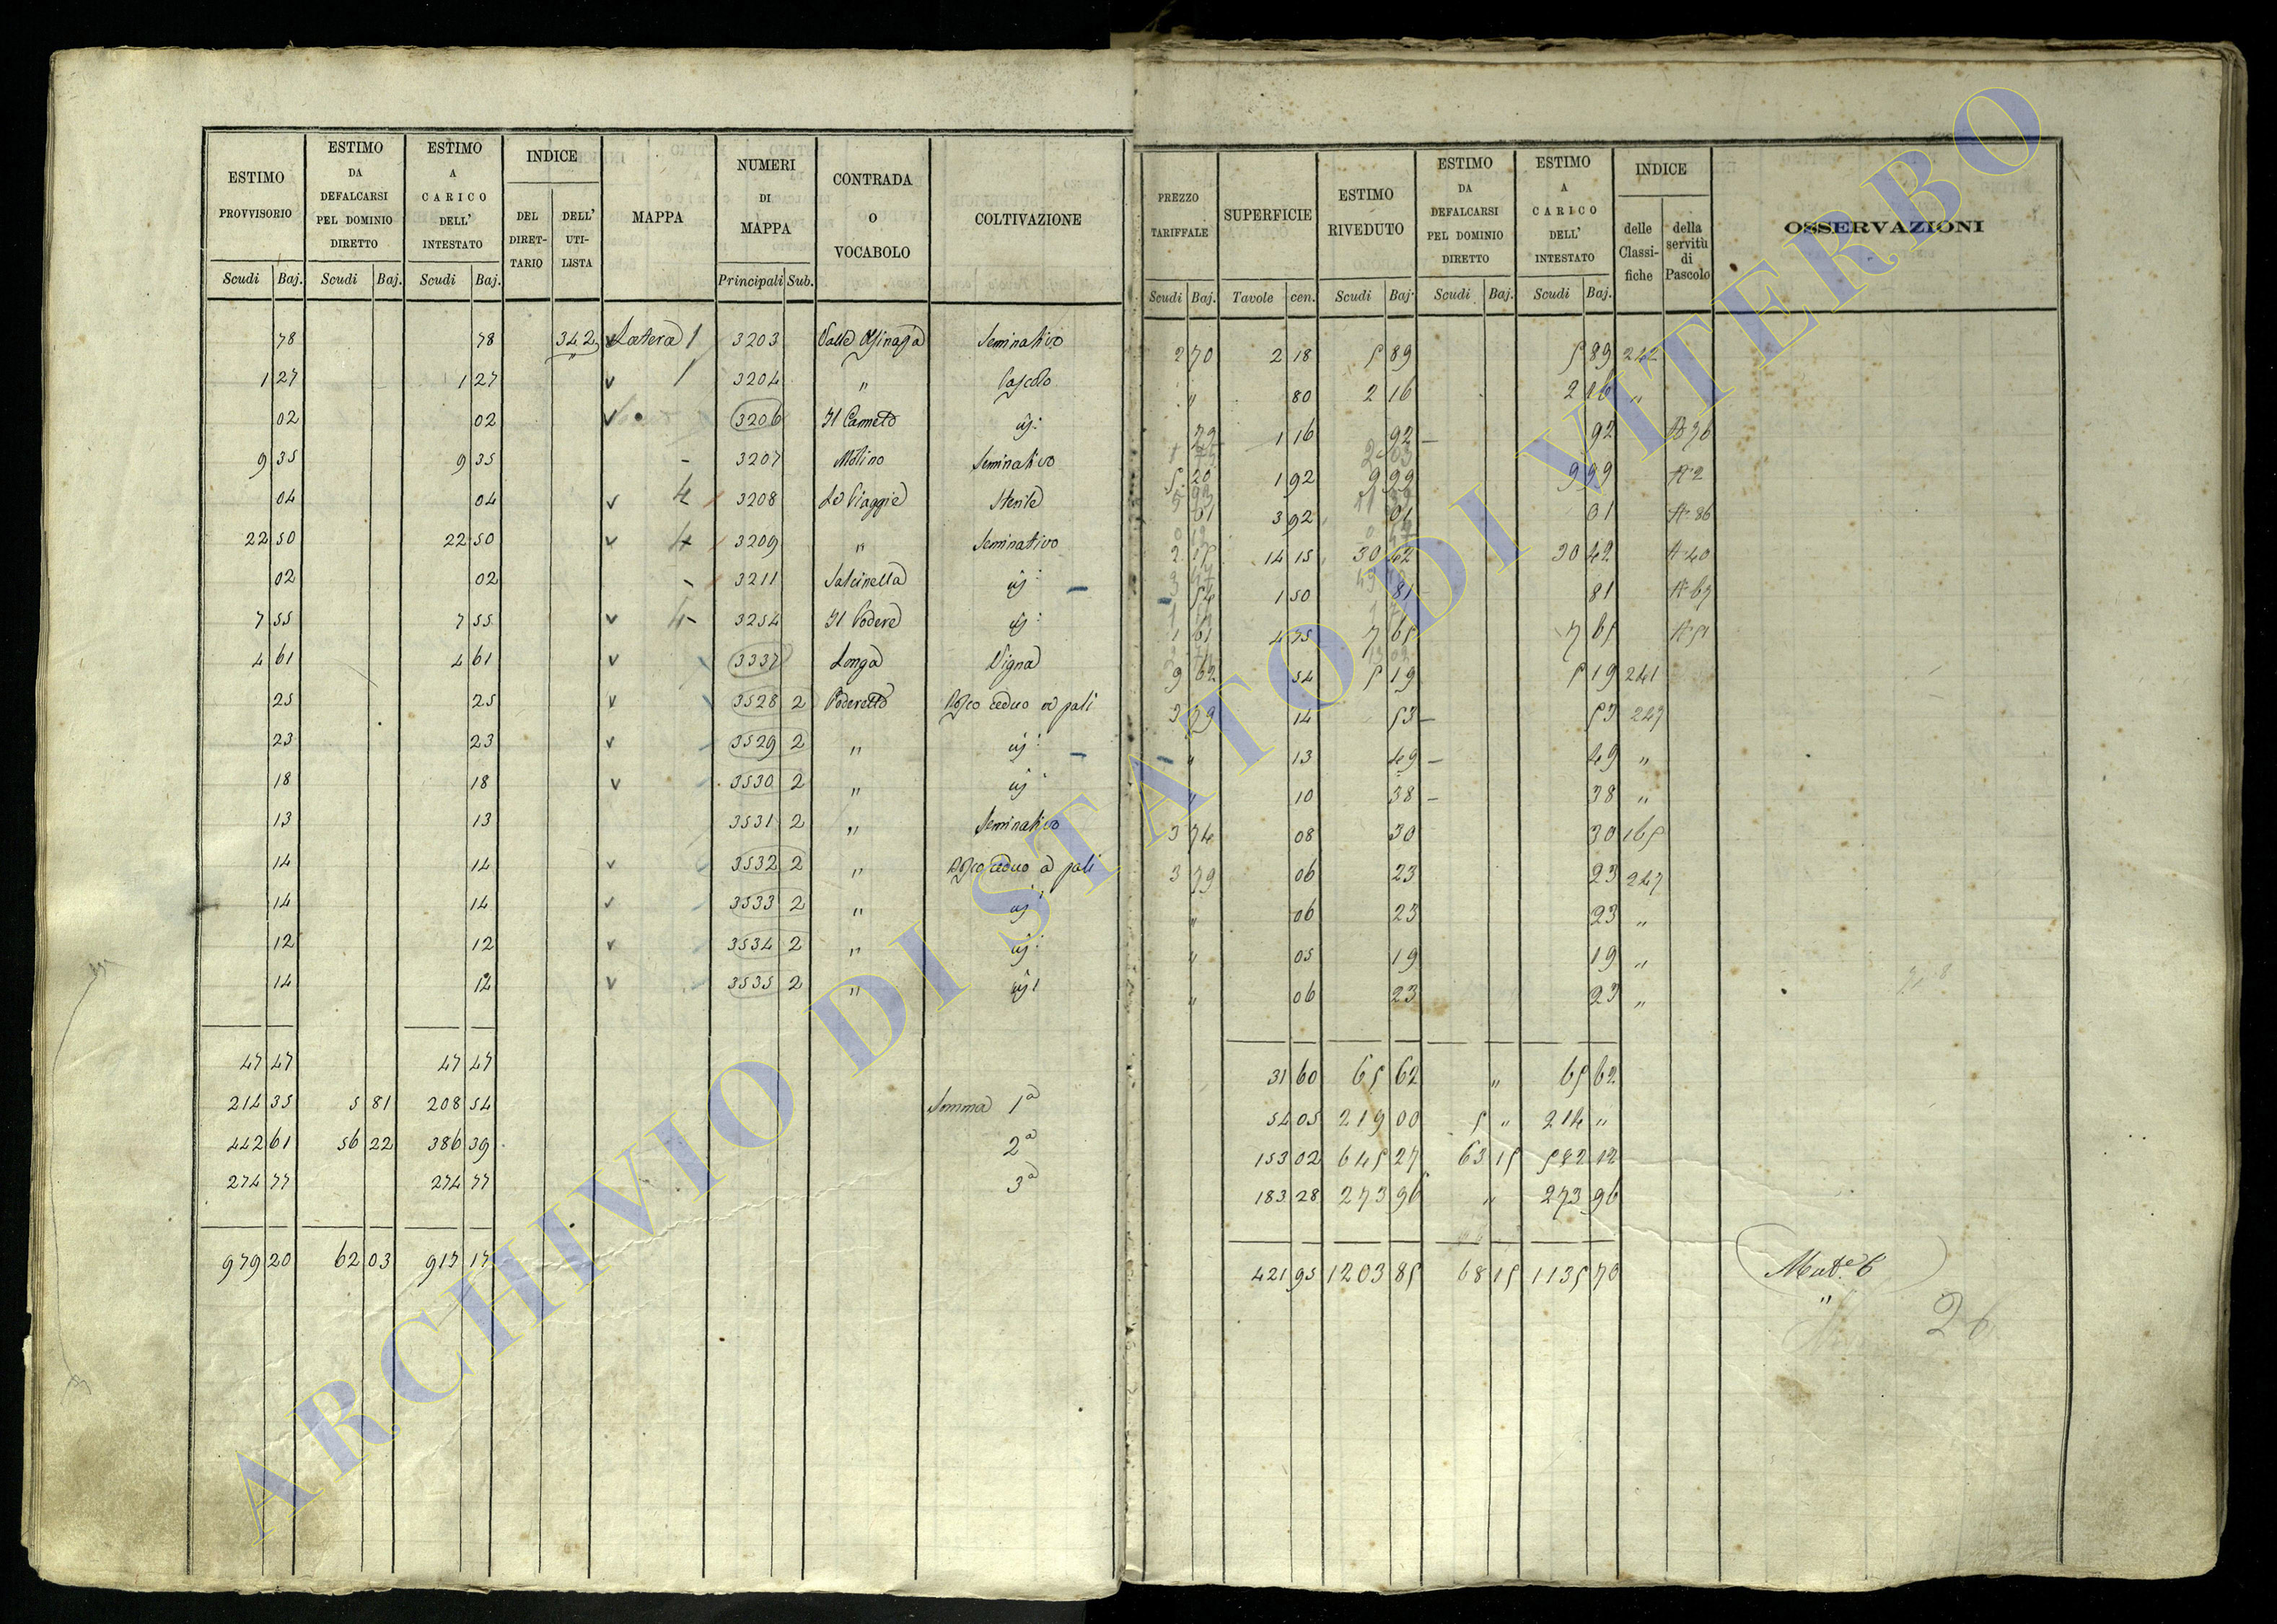 ESTIMO PROVVISORIO
ESTIMO DA DEFALCARSI PEL DOMINIO DIRETTO
ESTIMO A CARICO DELL' INTESTATO
INDICE
DEL DIRET-TARIO
DELL' UTI-LISTA
MAPPA
NUMERI DI MAPPA
CONTRADA O VOCABOLO
COLTIVAZIONE
PREZZO TARIFFALE
SUPERFICIE
ESTIMO RIVEDUTO
ESTIMO DA DEFALCARSI PEL DOMINIO DIRETTO
ESTIMO A CARICO DELL' INTESTATO
INDICE
delle Classi-fiche
della servitù di Pascolo
OSSERVAZIONI
Scudi Baj. Scudi Baj. Scudi Baj. Principali Sub. Scudi Baj. Tavole cen. Scudi Baj. Scudi Baj. Scudi Baj.
78 78 342 Latera 1 3203 Valle Seminativo 2 70 2 18 5 89 5 89 242
1 27 1 27 3204 " Pascolo " 80 2 16 2 16 "
02 02 3206 Il Canneto id: 79 1 16 92 92 A 76
9 35 9 35 3207 Molino Seminativo 5 20 1 92 9 99 9 99 A 2
04 04 4 3208 Le Piaggie Sterile 01 3 92 01 01 A 86
22 50 22 50 4 3209 " Seminativo 2 15 14 15 30 42 30 42 A 40
02 02 3211 Salcinella id: 54 1 50 81 81 A 67
7 55 7 55 4 3254 Il Podere id: 1 61 4 75 7 65 7 65 A 51
4 61 4 61 3337 Longa Vigna 9 62 54 5 19 5 19 241
25 25 3528 2 Poderetto Bosco ceduo a pali 3 79 14 53 53 247
23 23 3529 2 " id: " 13 49 49 "
18 18 3530 2 " id: " 10 38 38 "
13 13 3531 2 " Seminativo 3 74 08 30 30 165
14 14 3532 2 " Bosco ceduo a pali 3 79 06 23 23 247
14 14 3533 2 " id: " 06 23 23 "
12 12 3534 2 " id: " 05 19 19 "
14 12 3535 2 " id: " 06 23 23 "
47 47 47 47 31 60 65 62 " 65 62
214 35 5 81 208 54 Somma 1ª 54 05 219 00 5 " 214 "
442 61 56 22 386 39 2ª 153 02 645 27 63 15 582 12
274 77 274 77 3ª 183 28 273 96 " 273 96
979 20 62 03 917 17 421 95 1203 85 68 15 1135 70
26
ARCHIVIO DI STATO DI VITERBO